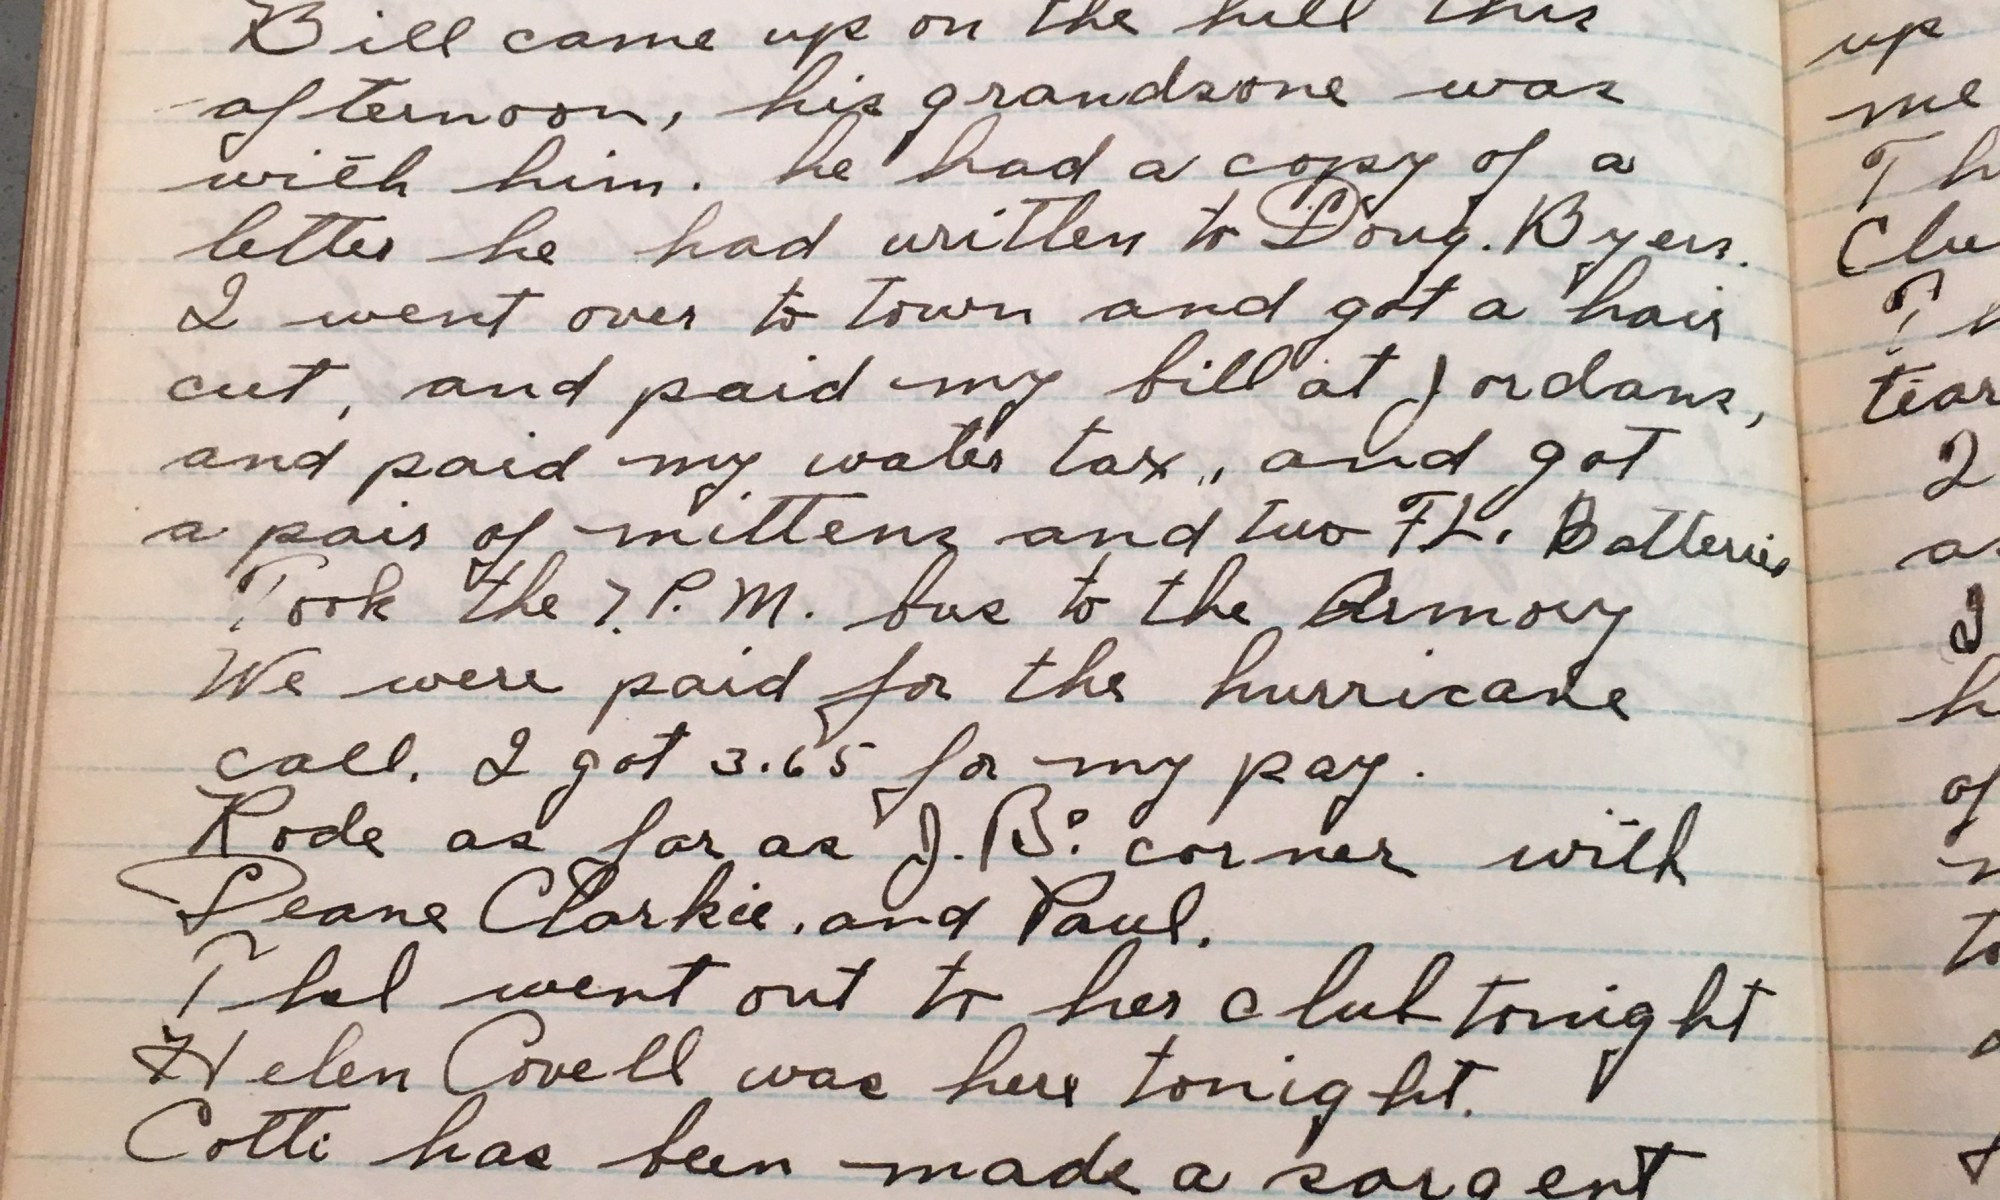 Bill came up on the hill this
afternoon, his grandsone was
with him. he had a copy of a
letter he had written to Doug. Byers.
I went over to town and got a hair
cut, and paid my bill at Jordans,
and paid my water tax,, and got
a pair of mittens and two FL. Batteries
Took the 7 P.M. bus to the Armory
We were paid for the hurricane
call. I got 3.65 for my pay.
Rode as far as J.B's corner with
Deane Clarkie, and Paul.
Thel went out to her club tonight
Helen Covell was here tonight.
Cotti has been made a sargent
up
me
Th
Clu
T
tear
I
a
I
h
of
to